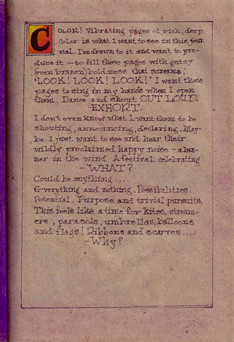 COLOR! Vibrating pages of rich, deep
color is what I want to see in this jour
nal. I'm drawn to it and want to pro-
duce it -- to fill these pages with gutsy
even brazen boldness that screams
"LOOK! LOOK! LOOK!" I want these
pages to sing in my hands when I open
them. Dance and shout OUT LOUD
EXHORT.
I don't even know what I want them to be
shouting, announcing, declaring. May-
be I just want to see and hear their
wildly proclaimed happy noise -
in the wind. A festival, celebrating
- WHAT?
Could be anything ....
Everything and nothing. Possibilities.
Potential. Purpose and trivial pursuits.
This feels like a time for kites, stream-
ers, parasols, umbrellas, balloons
and flags! Ribbons and scarves....
- Why?